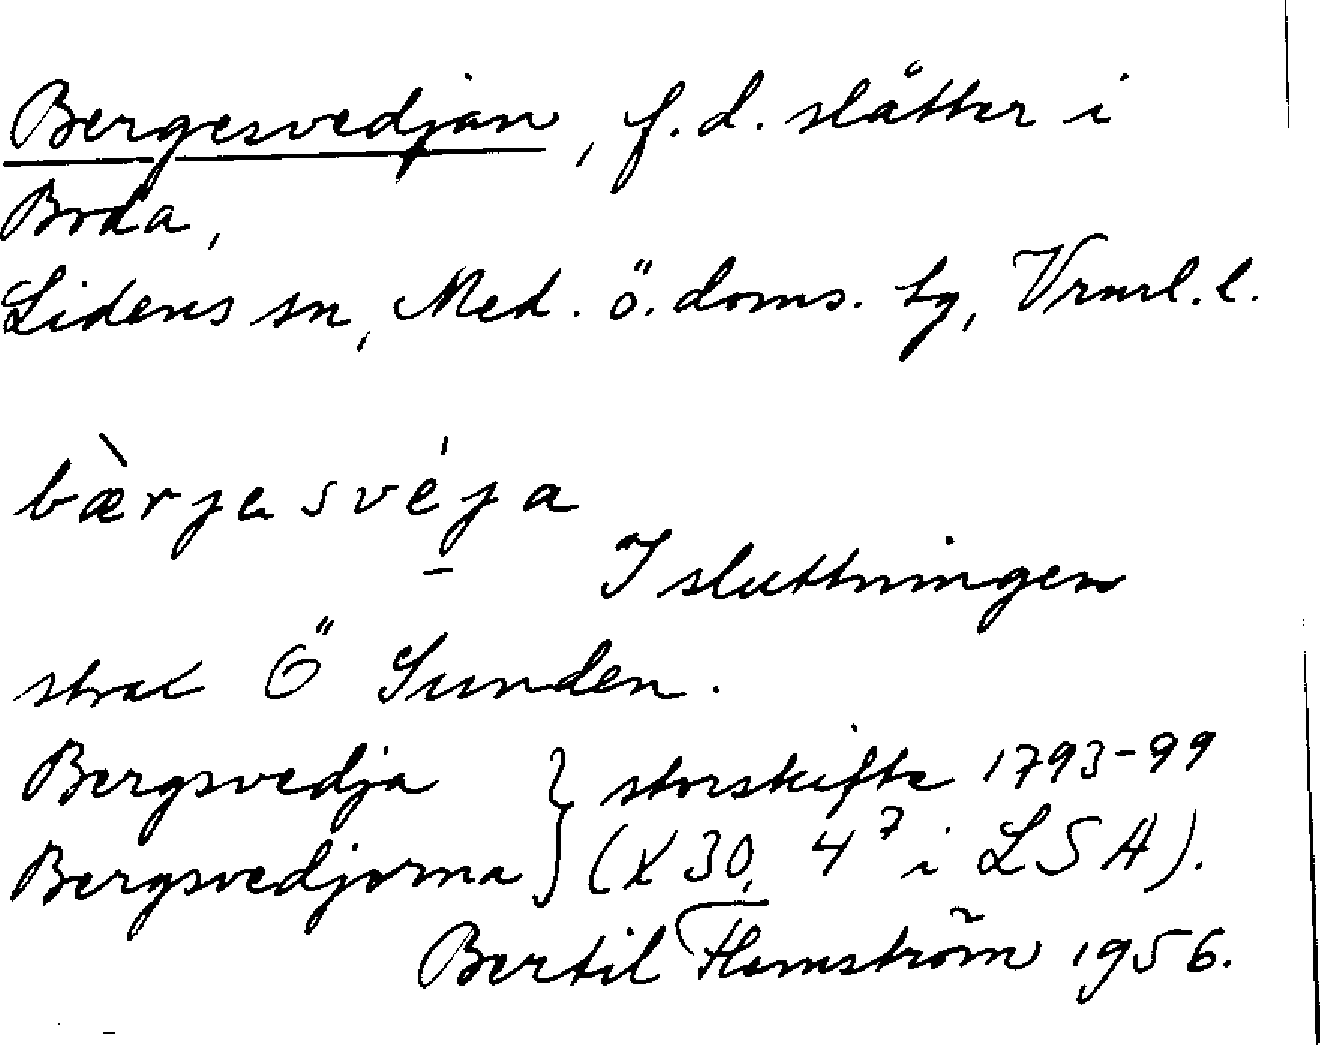 Bergesvedjan, f.d. slåtter i
Boda,
Lidens sn, Med. ö. doms. tg, Vrnrl. l.
bæ̀rjesvéja
I sluttningen
strax Ö Sunden.
Bergsvedja } storskifte 1793-99
Bergsvedjorna } (X30, 4⁷ i LSA).
Bertil Flemström 1956.